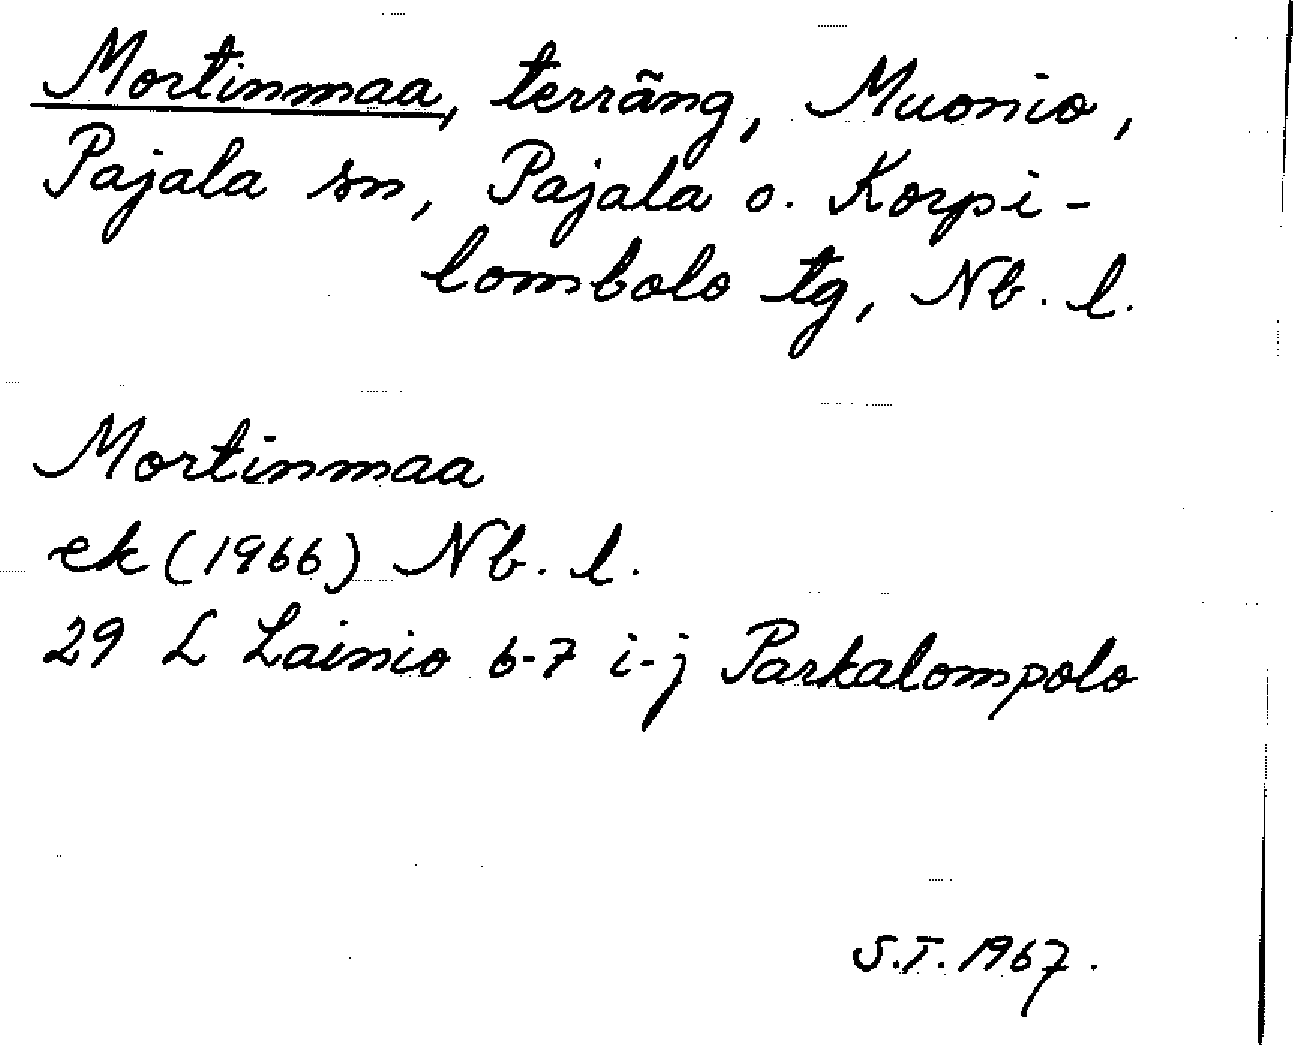 Mortinmaa, terräng, Muonio,
Pajala sn, Pajala o. Korpi-
lombolo tg, Nb. l.
Mortinmaa
ek (1966) Nb. l.
29 L Lainio 6-7 i-j Parkalompolo
S.T. 1967.